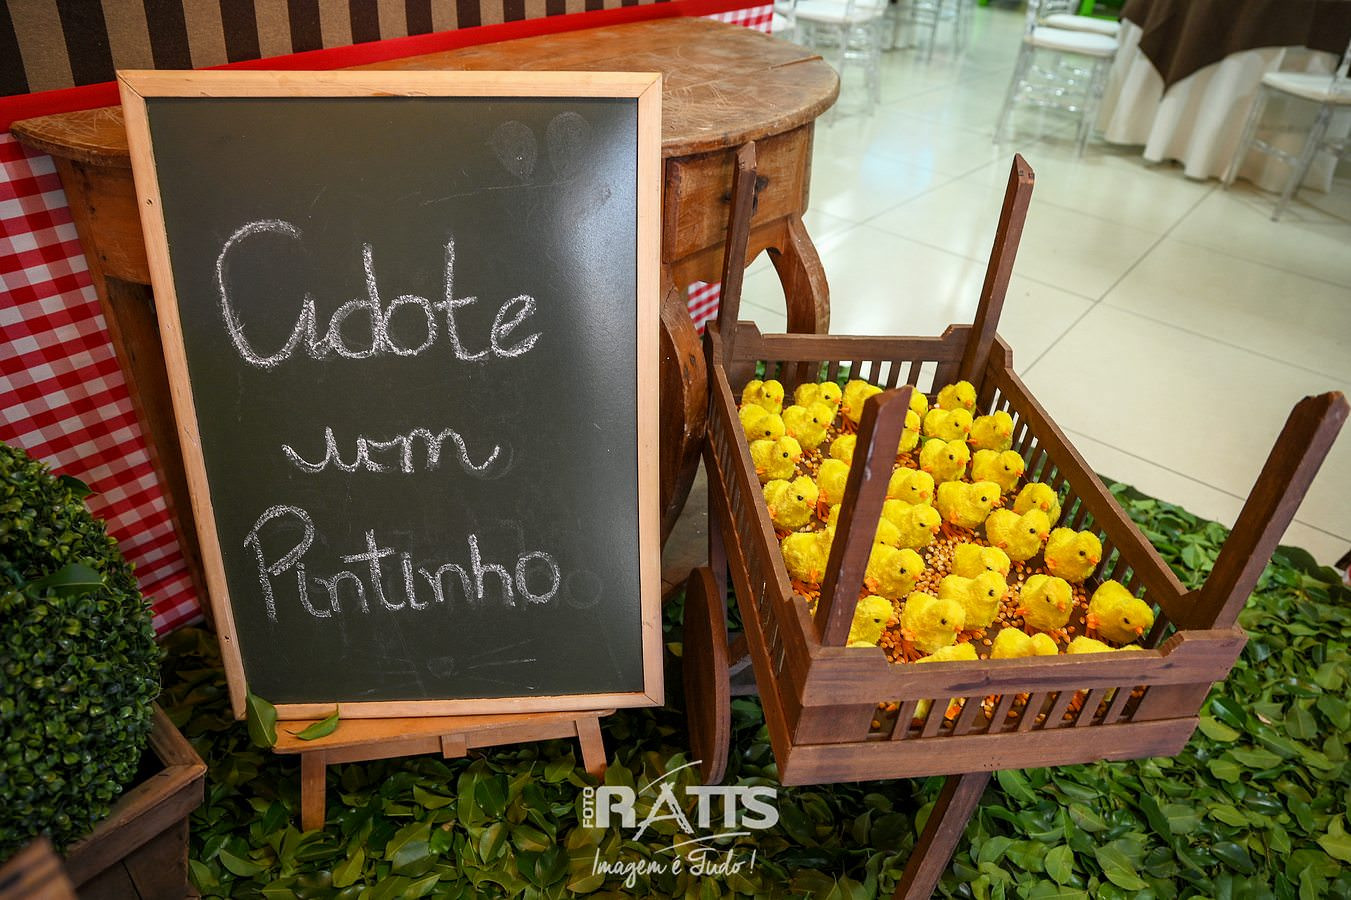 Adote
um
Pintinho
FOTO RATTS
Imagem é Tudo!